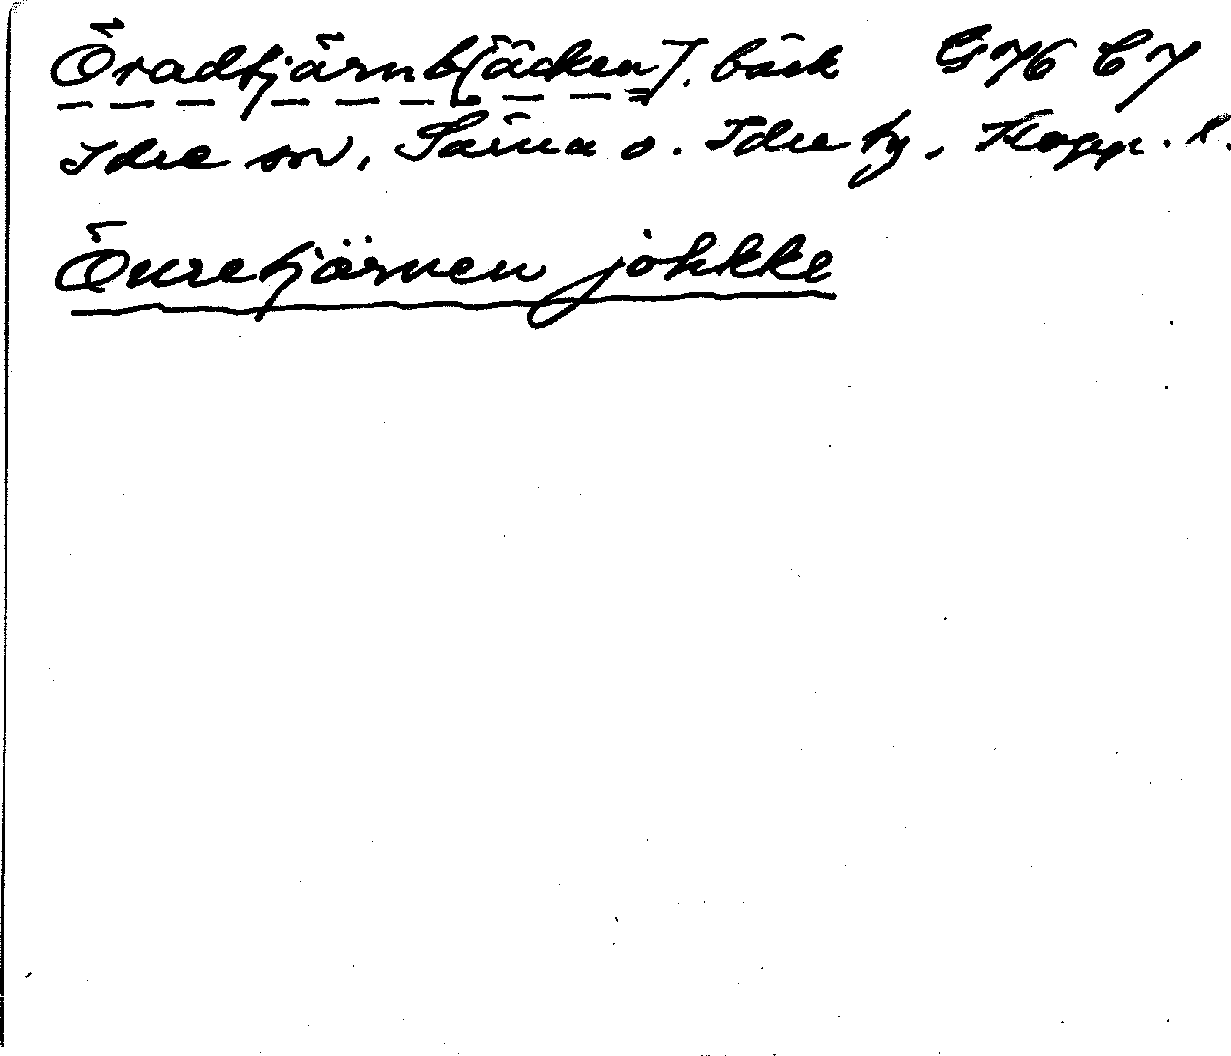 Öradtjärnb[äcken], bäck G76 C7
Idre sn, Särna o. Idre tg, Kopp. l.
Öuretjärnen johkke